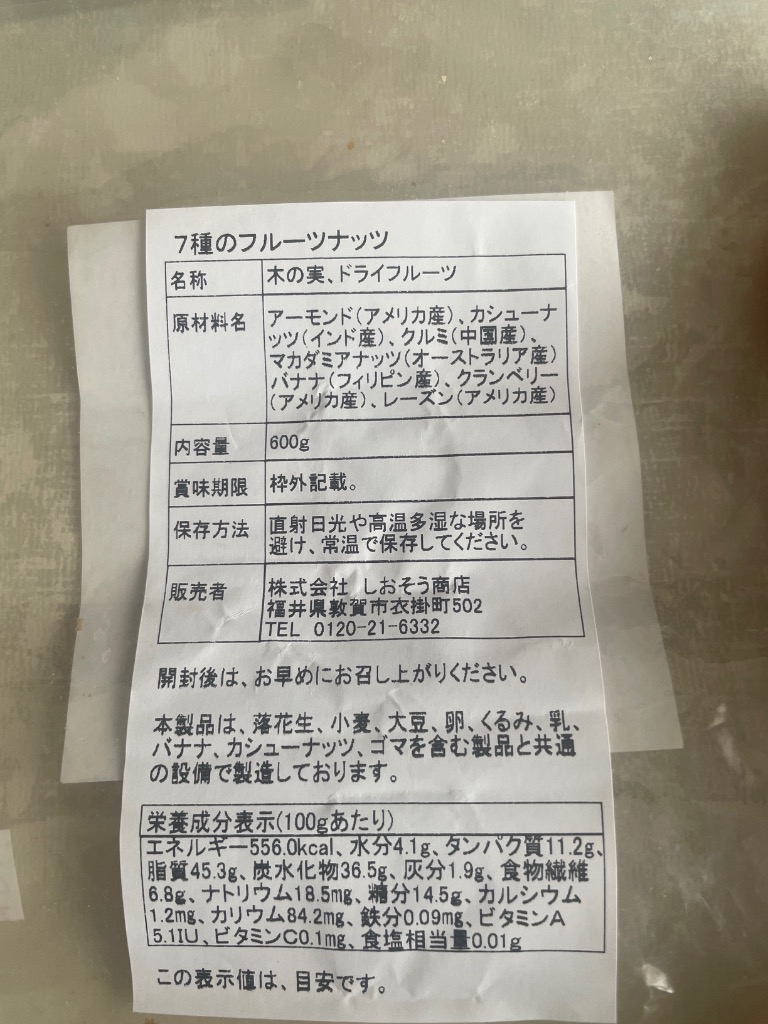 7種のフルーツナッツ
名称 木の実、ドライフルーツ
原材料名 アーモンド(アメリカ産)、カシューナ
ッツ(インド産)、クルミ(中国産)、
マカダミアナッツ(オーストラリア産)
バナナ(フィリピン産)、クランベリー
(アメリカ産)、レーズン(アメリカ産)
内容量 600g
賞味期限 枠外記載。
保存方法 直射日光や高温多湿な場所を
避け、常温で保存してください。
販売者 株式会社 しおそう商店
福井県敦賀市衣掛町502
TEL 0120-21-6332
開封後は、お早めにお召し上がりください。
本製品は、落花生、小麦、大豆、卵、くるみ、乳、
バナナ、カシューナッツ、ゴマを含む製品と共通
の設備で製造しております。
栄養成分表示(100gあたり)
エネルギー556.0kcal、水分4.1g、タンパク質11.2g、
脂質45.3g、炭水化物36.5g、灰分1.9g、食物繊維
6.8g、ナトリウム18.5mg、糖分14.5g、カルシウム
1.2mg、カリウム84.2mg、鉄分0.09mg、ビタミンA
5.1IU、ビタミンC0.1mg、食塩相当量0.01g
この表示値は、目安です。